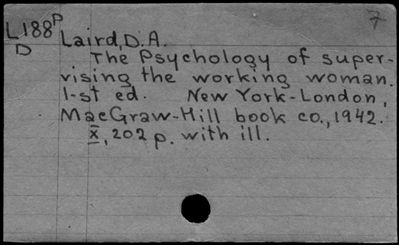 L188P 7
D Laird, D.A.
The Psychology of super-
vising the working woman.
1-st ed. New York-London,
MacGraw-Hill book co., 1942.
x, 202 p. with ill.